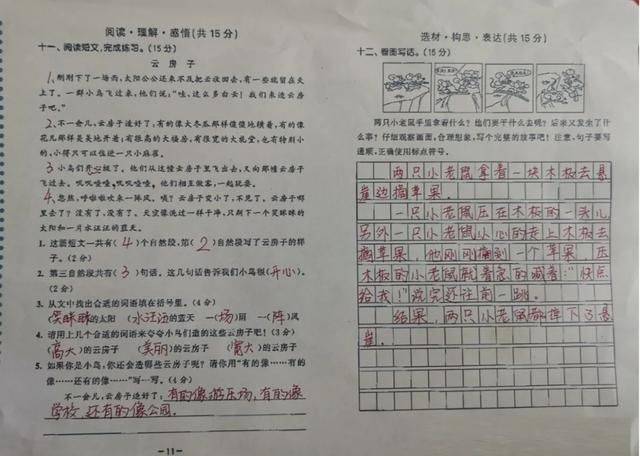 阅读·理解·感悟(共15分)
十一、阅读短文,完成练习。(15分)
云房子
1.刚刚下了一场雨,太阳公公还来不及把云收回去,有一些就留在天
上了。一群小鸟飞过来,他们说:“哇,这么多白云!我们来造云房
子吧。”
2.不一会儿,云房子造好了,有的像大冬瓜那样傻傻地横着,有的像
花儿那样美美地开着;有很高的大楼房,有很宽的大礼堂,也有特别小
的,小得只可以住进一只小麻雀。
3.小鸟们开心极了。他们从这幢云房子里飞出去,又向那幢云房子
飞过去。叽叽喳喳,叽叽喳喳。他们相互做客,一起玩耍。
4.忽然,呼啦啦吹来一阵风。咦?云房子变小了,不见了。云房子哪
里去了?没有了,没有了。天空像洗过一样干净,只剩下一个笑眯眯的
太阳和一片水汪汪的蓝天。
1. 这篇短文一共有(4)个自然段,第(2)自然段写了云房子的样
子。(2分)
2. 第三自然段共有(3)句话。这几句话告诉我们小鸟很(开心)。
(2分)
3. 从文中找出合适的词语填在括号里。(4分)
(笑眯眯)的太阳 (水汪汪)的蓝天 一(场)雨 一(阵)风
4. 请用上几个合适的词语来夸夸小鸟们造的这些云房子吧!(3分)
(高大)的云房子 (美丽)的云房子 (宽大)的云房子
5. 如果你是小鸟,你还会造哪些云房子呢?请你用“有的像……有的
像……还有的像……”写一写。(4分)
不一会儿,云房子造好了:有的像游乐场,有的像
学校,还有的像公园。
—11—
选材·构思·表达(共15分)
十二、看图写话。(15分)
两只小老鼠手里拿着什么?他们要干什么去呢?后来又发生了什
么事?仔细观察画面,合理想象,写个完整的故事吧!注意,句子要写
通顺,正确使用标点符号。
两只小老鼠拿着一块木板去悬
崖边摘苹果。
一只小老鼠压在木板的一头儿
另外一只小老鼠小心的走上木板去
摘苹果,他刚刚摘到一个苹果,压
木板的小老鼠就着急的喊着:“快点
给我!”说完还往前一跳。
结果,两只小老鼠都掉下了悬
崖。